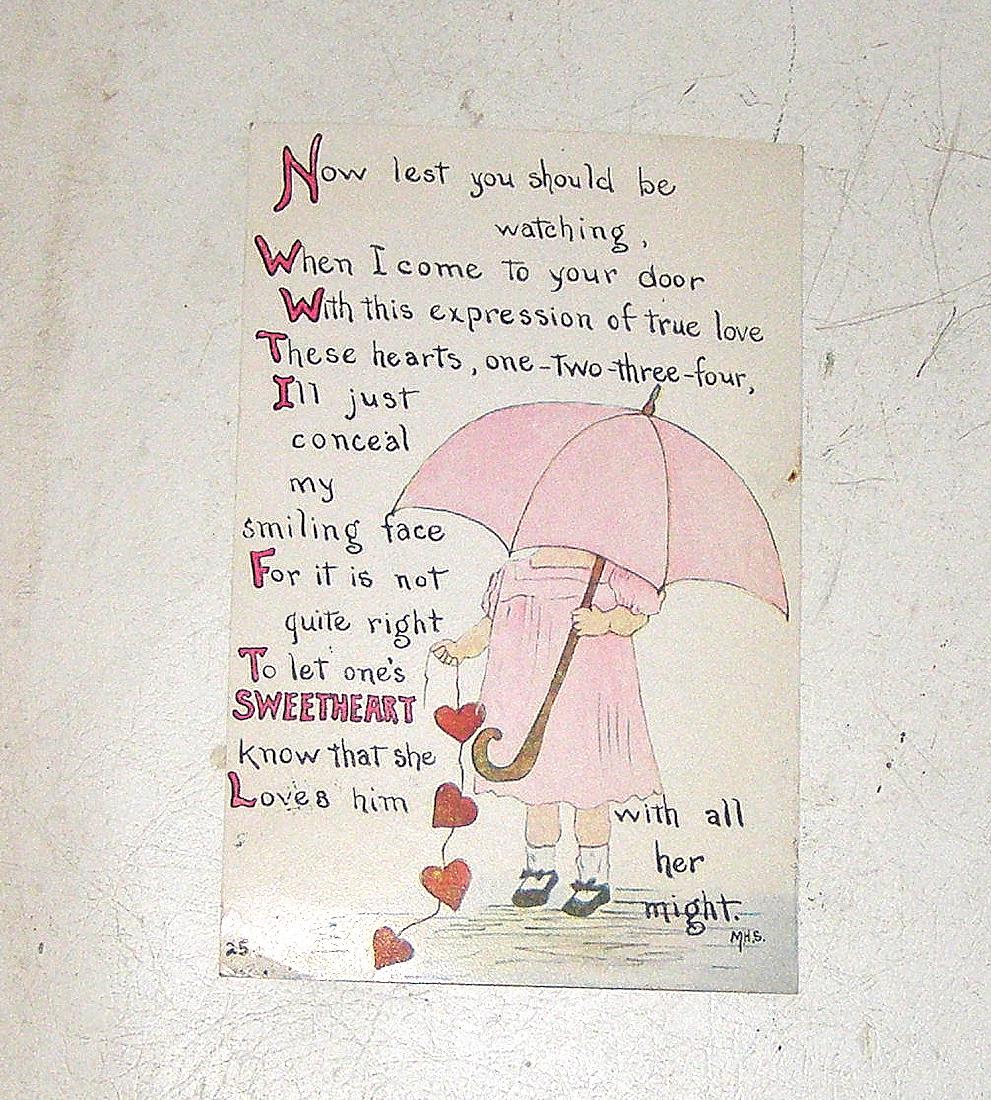 Now lest you should be
watching,
When I come to your door
With this expression of true love
These hearts, one-two-three-four,
I'll just
conceal
my
smiling face
For it is not
quite right
To let one's
SWEETHEART
know that she
Loves him with all
her
might.
M.H.S.
25